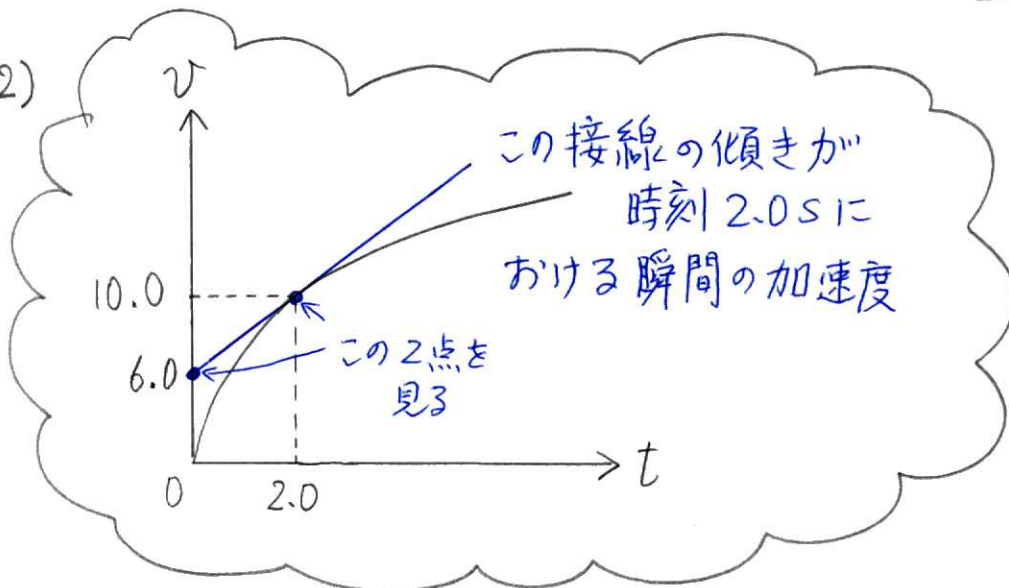 2)
v
この接線の傾きが
時刻 2.0sに
おける瞬間の加速度
10.0
この2点を
見る
6.0
0
2.0
t